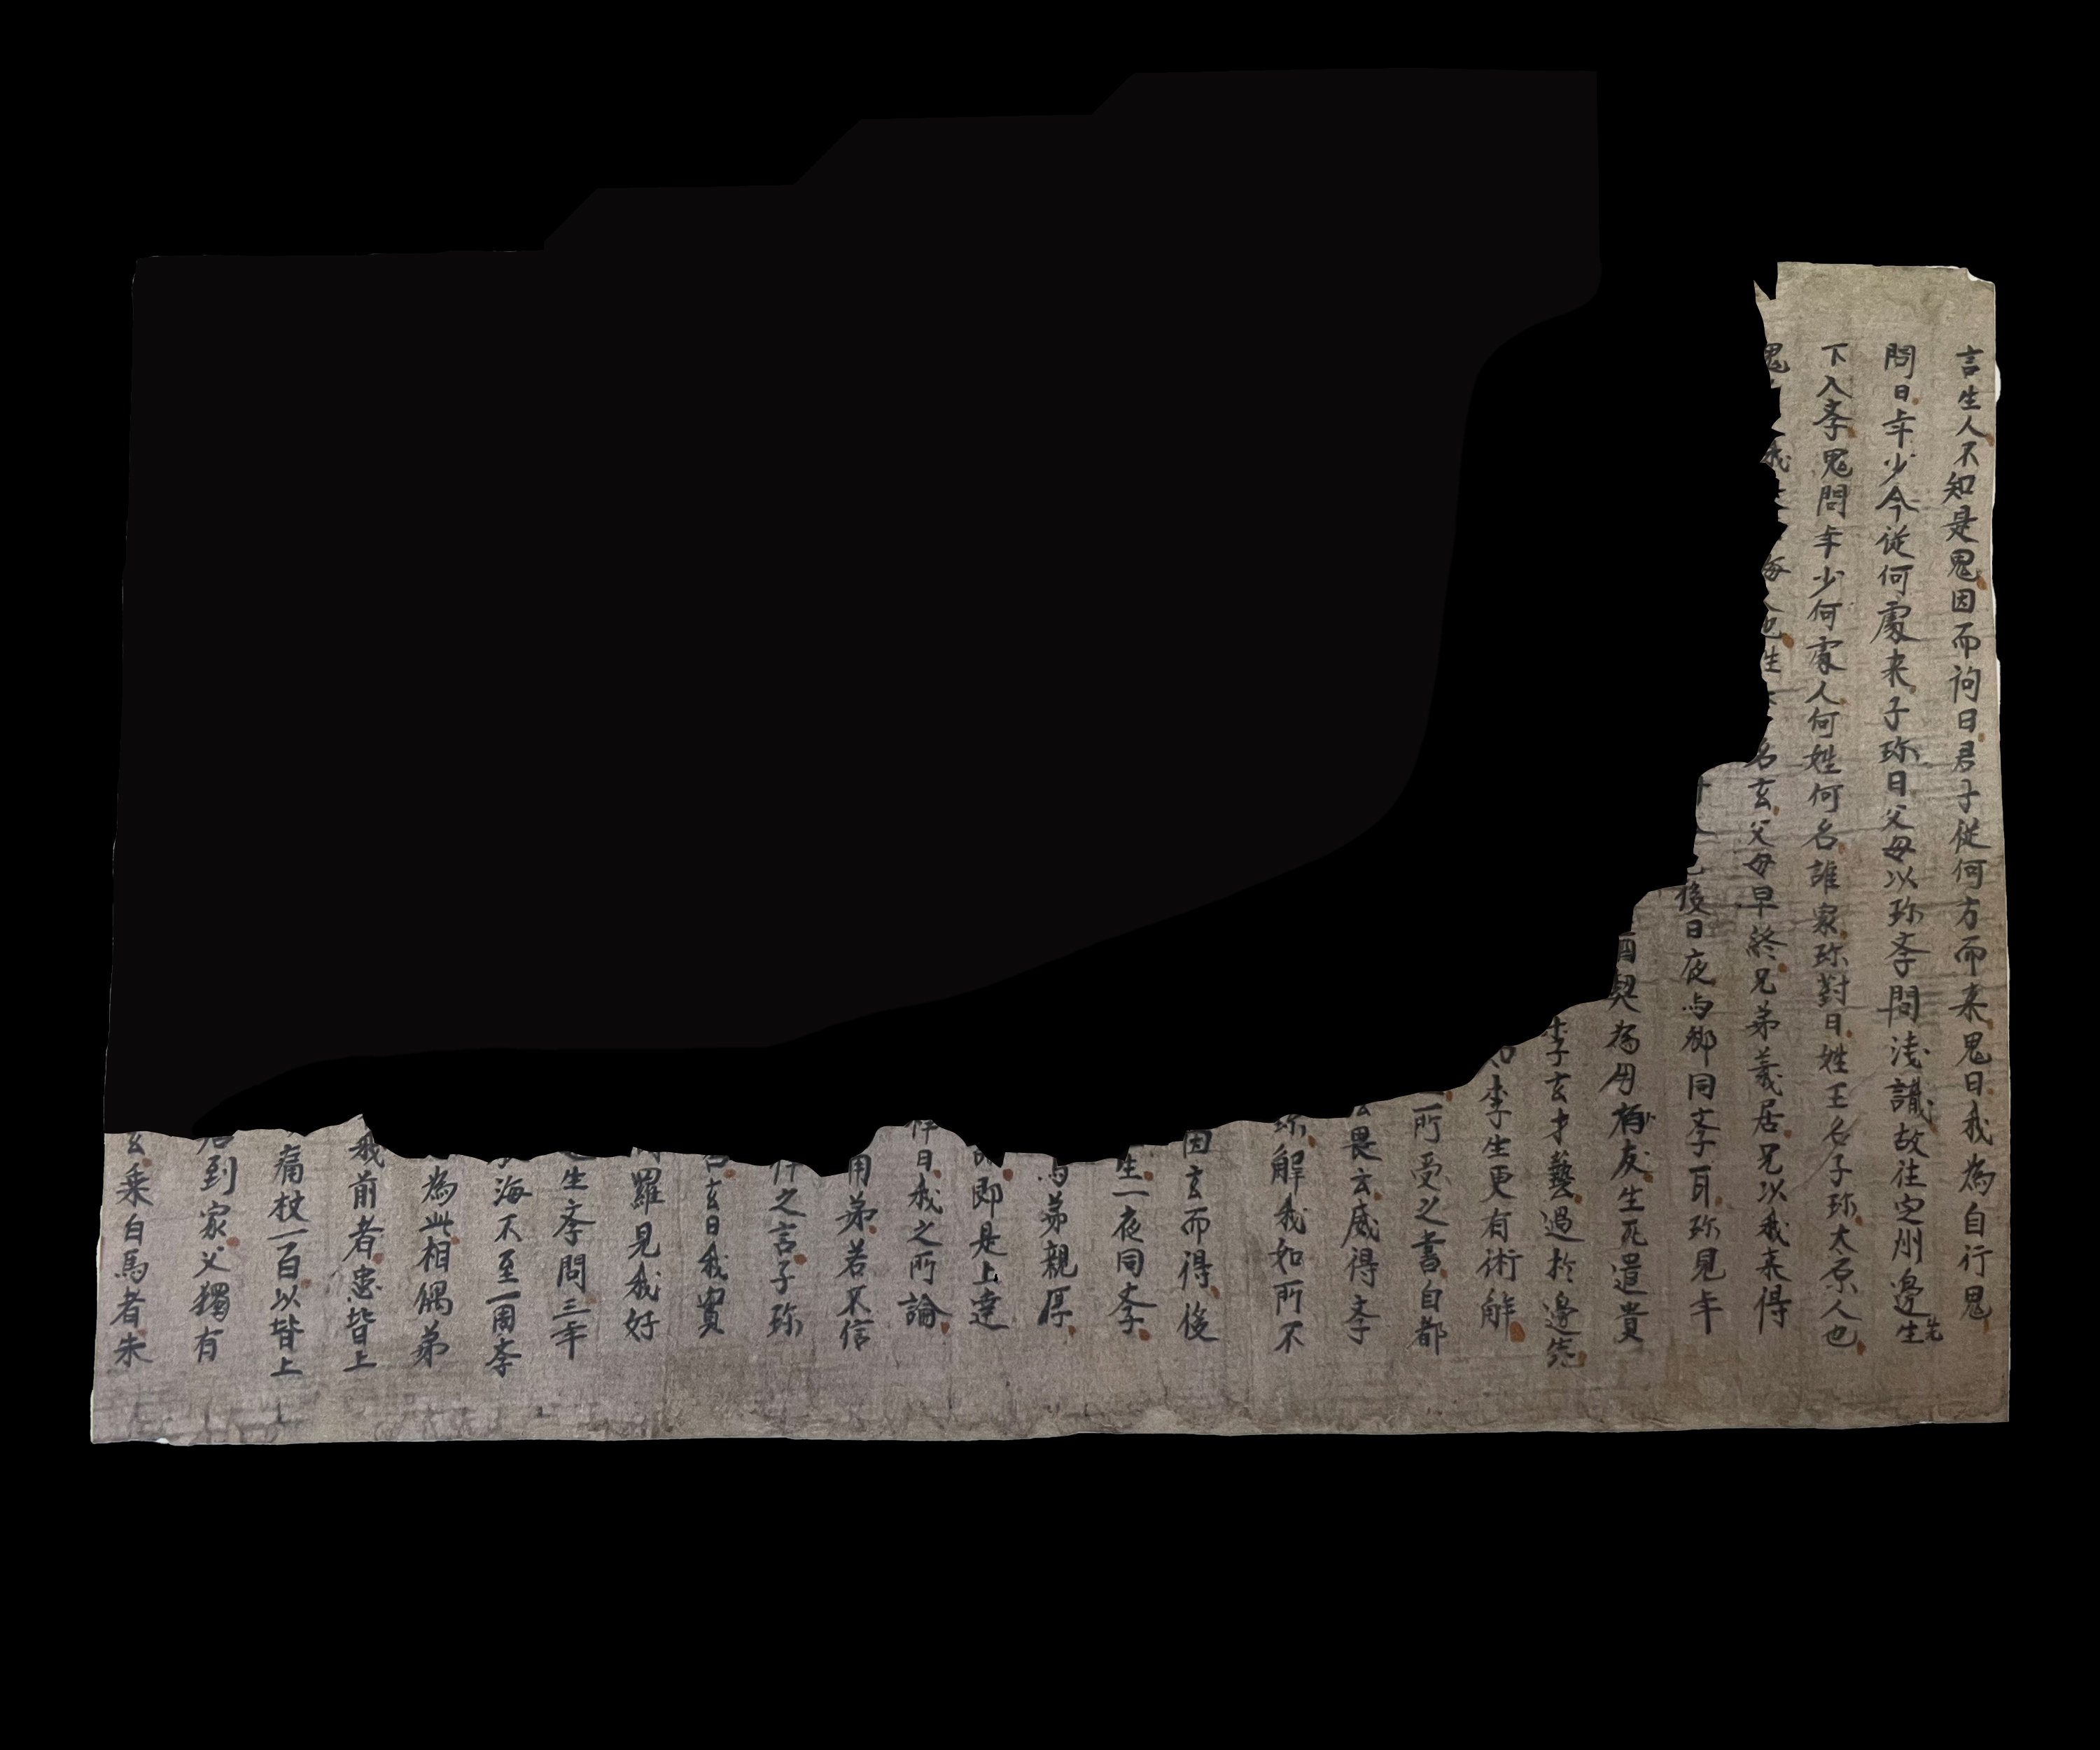 言生人不知是鬼因而詢曰君子從何方而来鬼曰我為自行鬼
問曰年少今從何處来子珎曰父母以珎斈問淺識故往定州邊先生
下入斈鬼問年少何處人何姓何名誰家珎對曰姓王名子珎太原人也
鬼我海也生名玄父母早終兄弟義居兄以我来得
後日夜与鄉同斈耳珎見年
酒契為朋有友生死遣貴
李玄才藝過於邊先
李生更有術解
所受之書自都
畏玄感得斈
珎解我如所不
因玄而得後
生一夜同斈
与弟親厚
即是上達
伴曰我之所論
用弟若不信
伴之言子珎
玄曰我實
羅見我好
生斈問三年
海不至一周斈
為此相偶弟
我前者患皆上
痛杖一百以皆上
后到家父獨有
玄乗白馬者朱